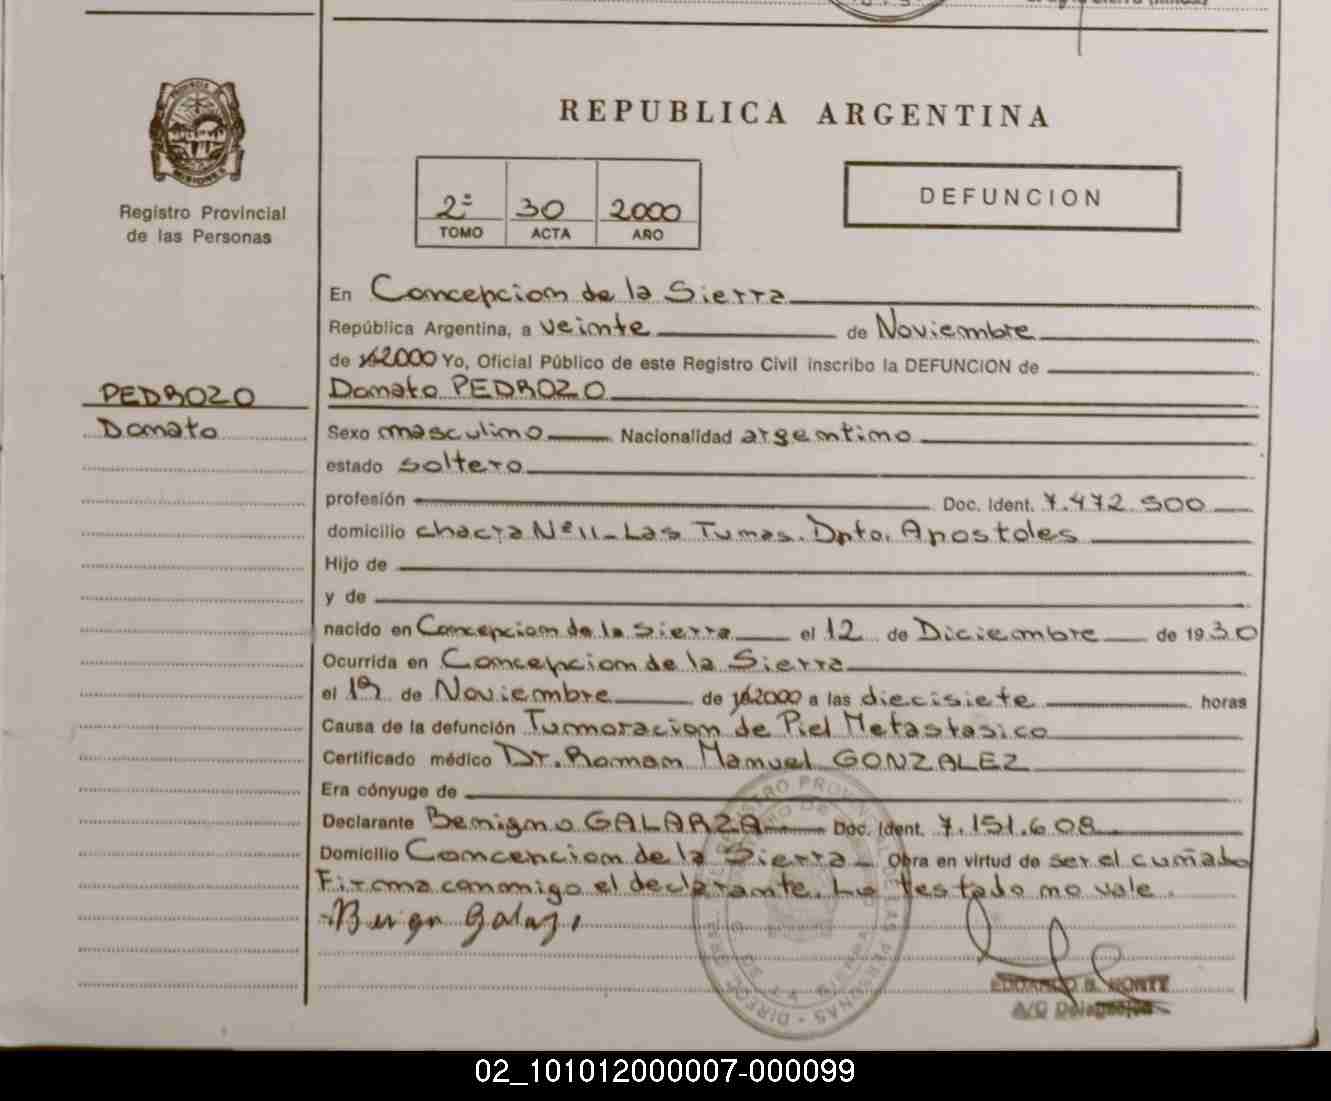 REPUBLICA ARGENTINA
Registro Provincial
de las Personas
2º 30 2000
TOMO ACTA AÑO
DEFUNCION
En Concepcion de la Sierra
República Argentina, a veinte de Noviembre
de 2000 Yo, Oficial Público de este Registro Civil inscribo la DEFUNCION de
PEDROZO
Donato PEDROZO
Donato
Sexo masculino Nacionalidad argentino
estado soltero
profesión Doc. Ident. 7.472.500
domicilio chacra Nº 11_ Las Tunas. Dpto. Apostoles
Hijo de
y de
nacido en Concepcion de la Sierra el 12 de Diciembre de 1930
Ocurrida en Concepcion de la Sierra
el 19 de Noviembre de 2000 a las diecisiete horas
Causa de la defunción Tumoracion de Piel Metastasico
Certificado médico Dr. Roman Manuel GONZALEZ
Era cónyuge de
Declarante Benigno GALARZA Doc. Ident. 7.151.608
Domicilio Concepcion de la Sierra Obra en virtud de ser el cuñado
Firma conmigo el declarante. Lo testado no vale.
EDUARDO B. MONTE
A/C Delegación
02_101012000007-000099